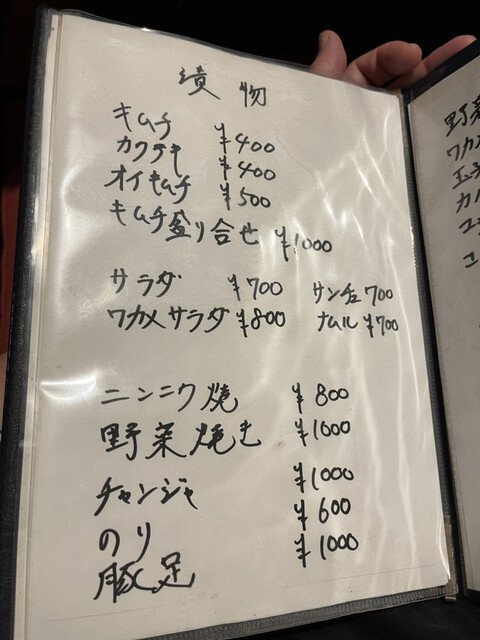 漬物
キムチ ¥400
カクテキ ¥400
オイキムチ ¥500
キムチ盛り合せ ¥1000
サラダ ¥700 サンチュ 700
ワカメサラダ ¥800 ナムル ¥700
ニンニク焼 ¥800
野菜焼き ¥1000
チャンジャ ¥1000
のり ¥600
豚足 ¥1000
野菜
ワカメ